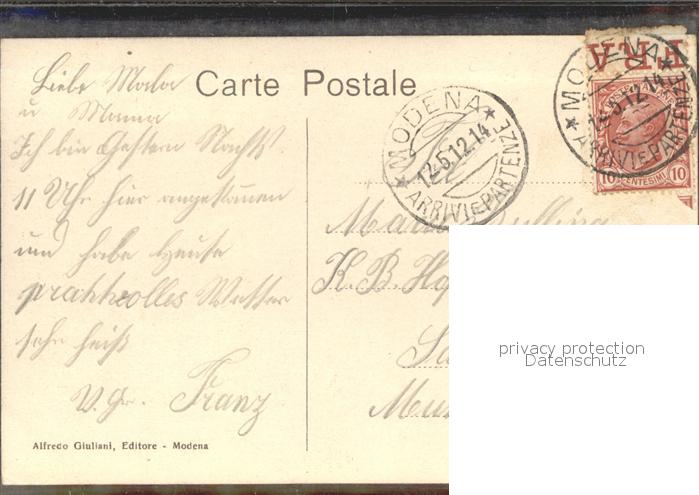 Carte Postale
Liebe Mala
u Mama
Ich bin Gestern Nachts
11 Uhr hier angekommen
und habe Heute
prachtvolles Wetter
sehr heiß
V. Gr. Franz
Alfredo Giuliani, Editore - Modena
MODENA
12.5.12.14
ARRIVI E PARTENZE
MODENA
12.5.12.14
ARRIVI E PARTENZE
10 CENTESIMI 10
K. B.
privacy protection
Datenschutz